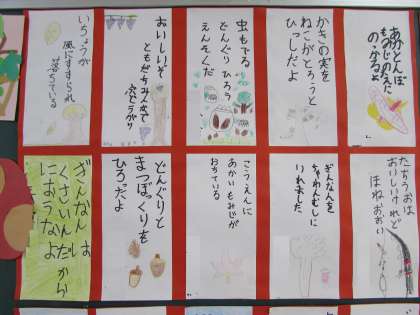 あかとんぼ
もみじのえだに
のっかるよ
かきの実を
ねこがとろうと
ひっしだよ
虫もでる
どんぐりひろう
えんそくだ
おいしいぞ
ともだちみんなで
いちょうが
風にすすられ
落ちている
たちうおは
おいしいけれど
ほねおおい
ぎんなんを
ちゃわんむしに
いれました
こうえんに
あかいもみじが
おちている
どんぐりと
まつぼっくりを
ひろっだよ
ぎんなんは
くさいんだから
におうなよ